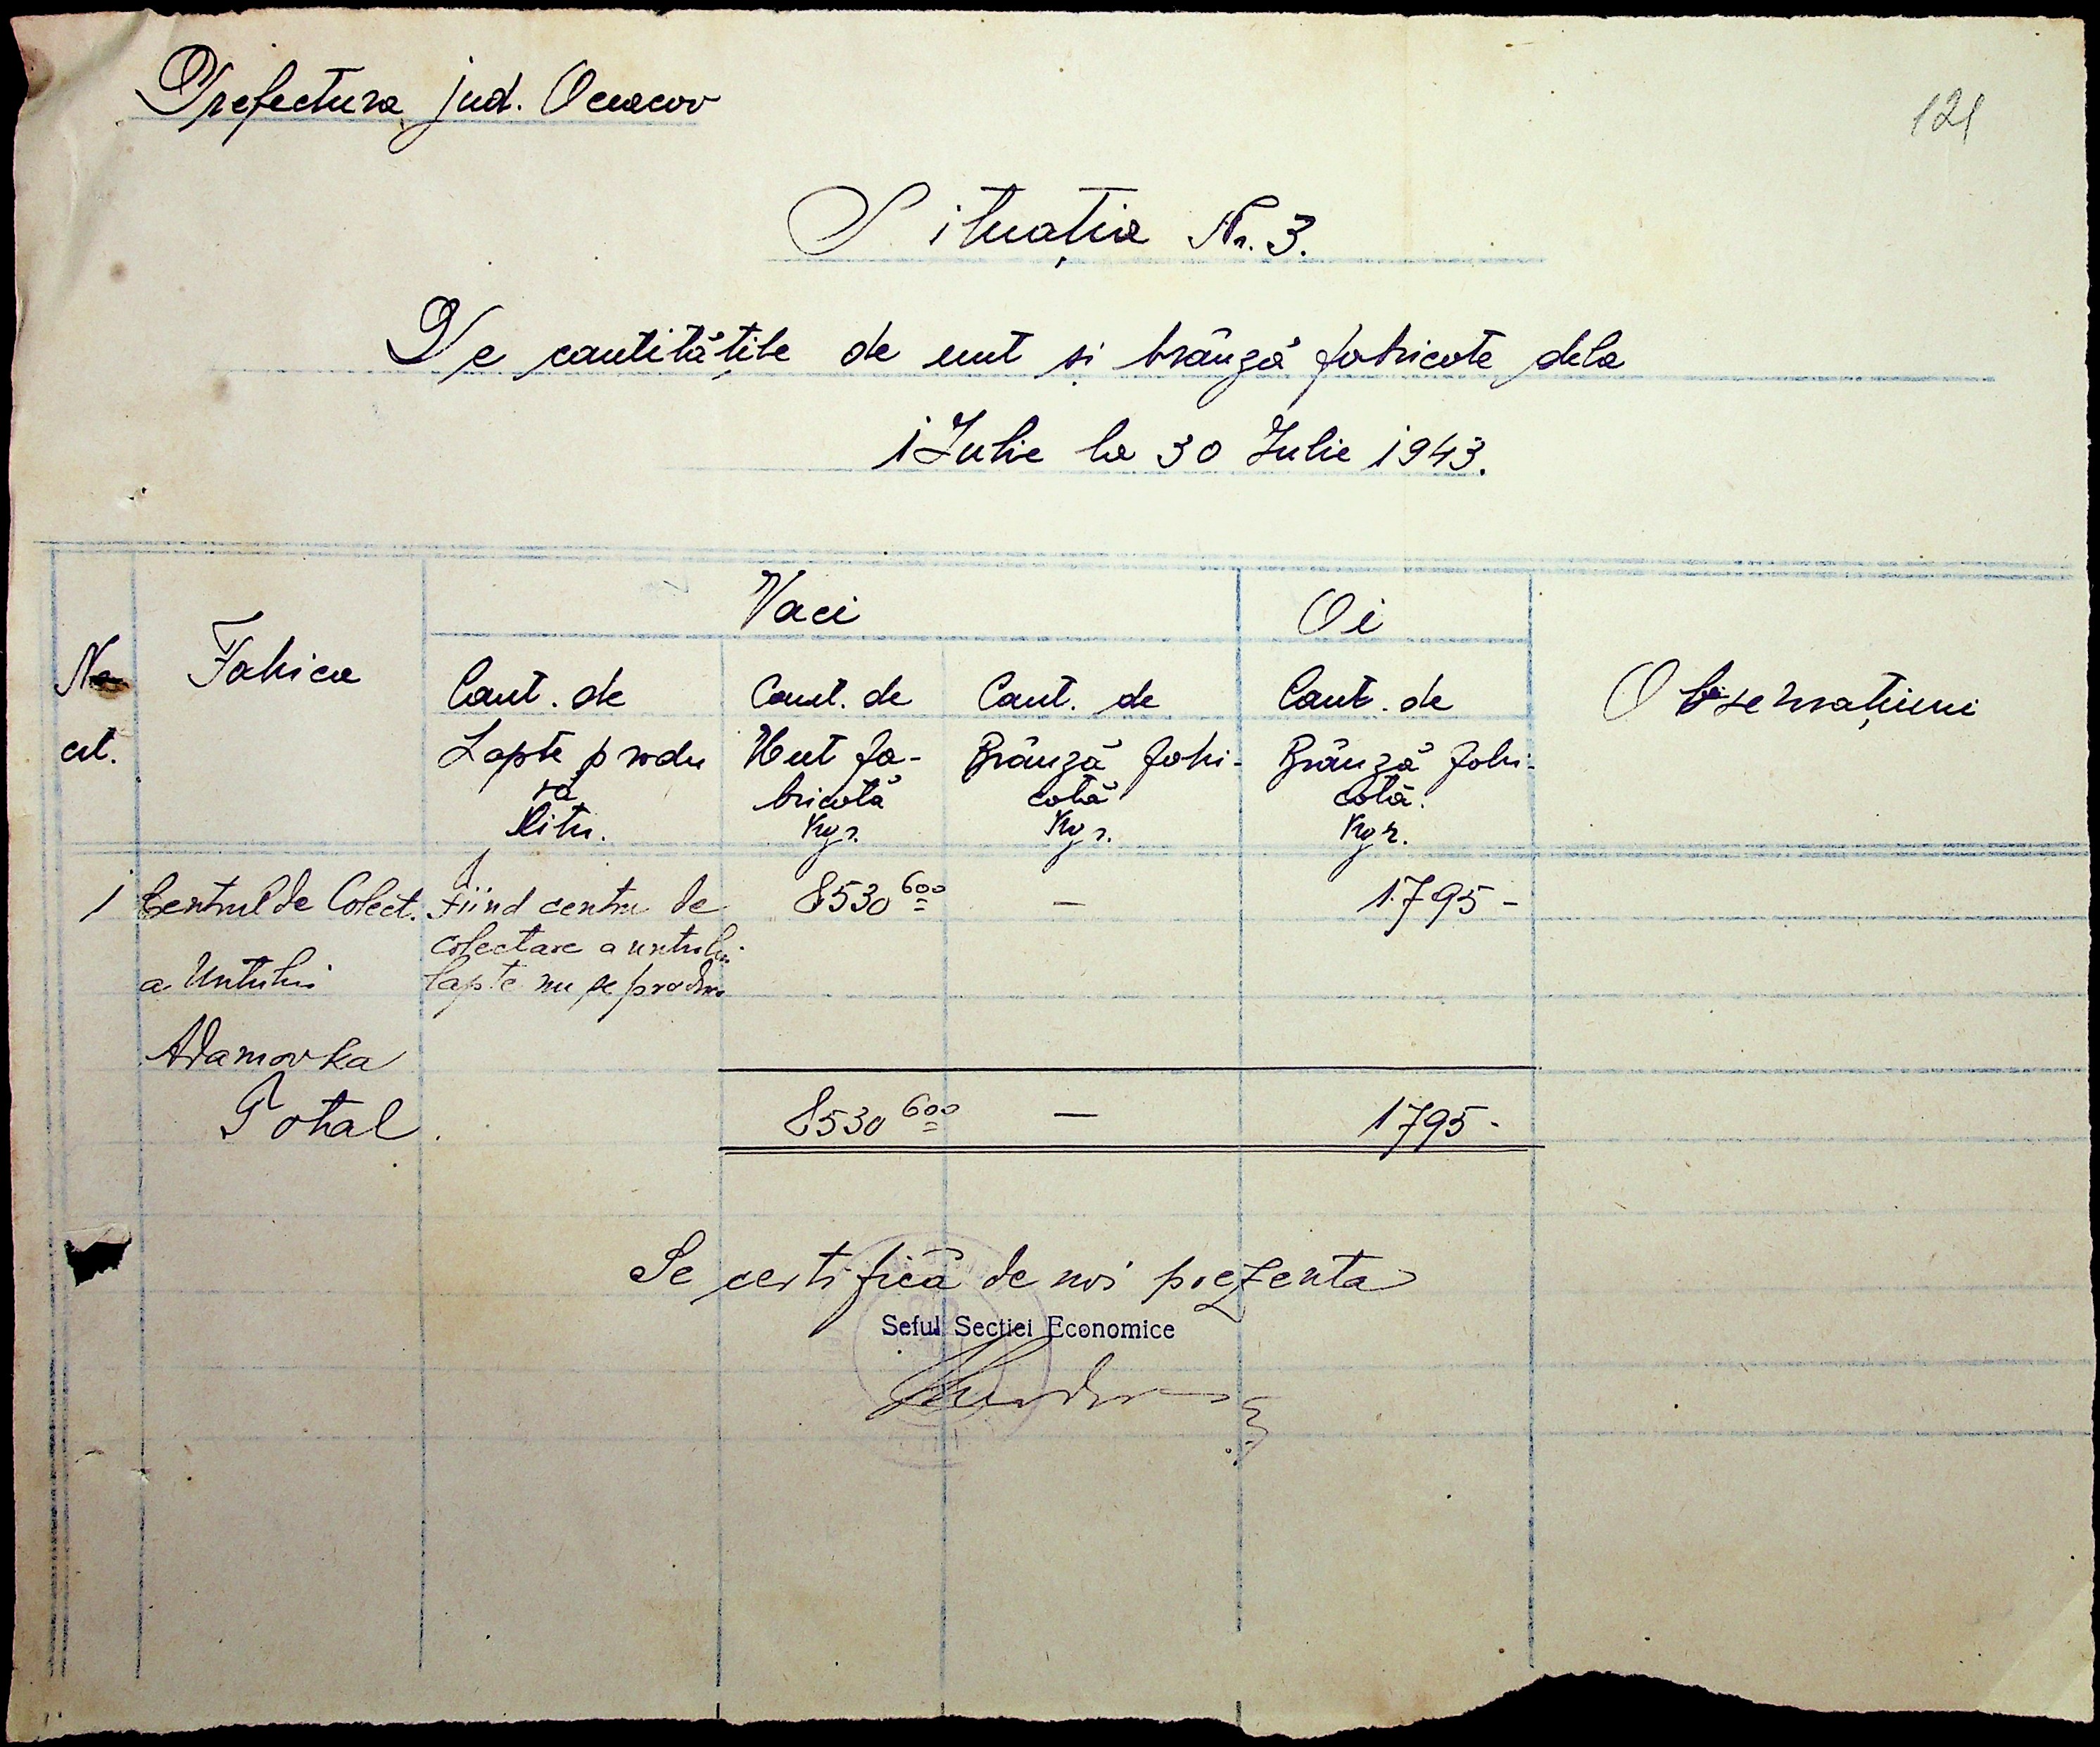 Prefectura jud. Oceacov
121
Situația Nr. 3.
De cantitățile de unt și brânză fabricate dela
1 Iulie la 30 Iulie 1943.
Vaci
Oi
Nr.
crt.
Fabrica
Cant. de
Lapte produ
să
Litri.
Cant. de
Unt fa-
bricată
Kgr.
Cant. de
Brânză fabri-
cată
Kgr.
Cant. de
Brânză fabri-
cată.
Kgr.
Observațiuni
1 Centrul de Colect. Fiind centru de 8530 600 — 1795 -
colectare a untului
a Untului lapte nu se produce
Adamovka
Total. 8530 600 — 1795 -
Se certifică de noi prezenta
Seful Sectiei Economice